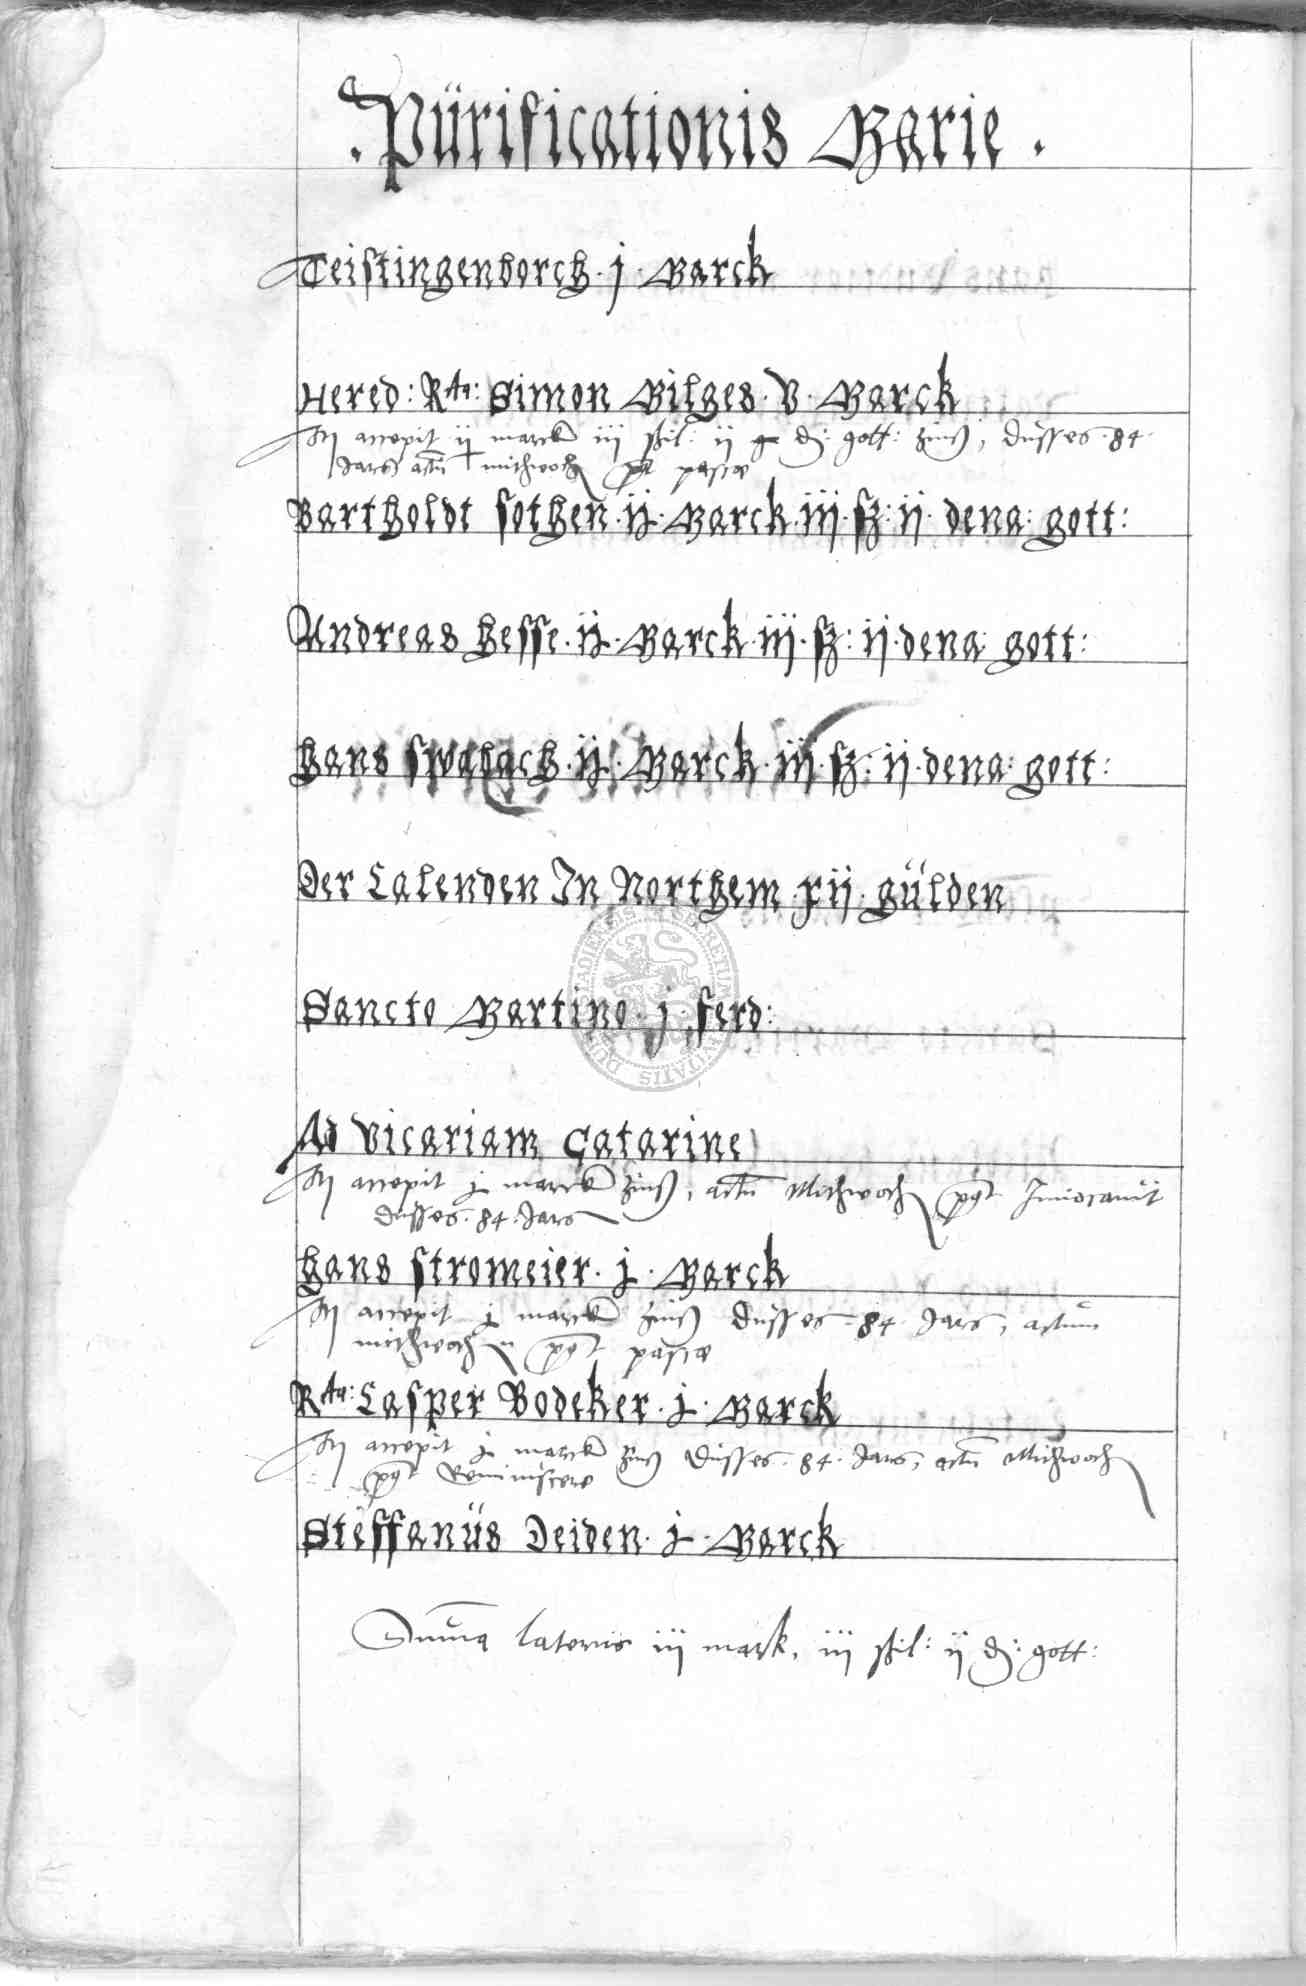 . Pürificationis Marie .
Teistingenborch · j · Marck
Hered: Rta: Simon Milges · v · Marck
accepit ij marck iij ßil: ij d: gott: zinß, dusses · 84 ·
Jars actu mithwoch pt pascæ
Bartholdt sothen · ij · Marck · iij · ß: ij · dena: gott:
Andreas hesse · ij · Marck · iij · ß: ij · dena: gott:
hans swabach · ij · Marck · iij · ß: ij · dena: gott:
Der Calenden In Northem · xij · gülden
Sancto Martino · j · ferd:
Ad vicariam Catarine
accepit j marck zinß, actu Mithwoch pt Invocavit
dusses · 84 · Jars
hans stromeier · j · Marck
accepit j marck zinß dusses · 84 · Jars, actum
mithwoch pt pascæ
Rta: Casper Bodeker · j · Marck
accepit j marck zinß dusses · 84 · Jars, actu Mithwoch
pt Reminiscere
Steffanüs Deiden · j · Marck
Suma lateris iij mark, iij ßil: ij d: gott: